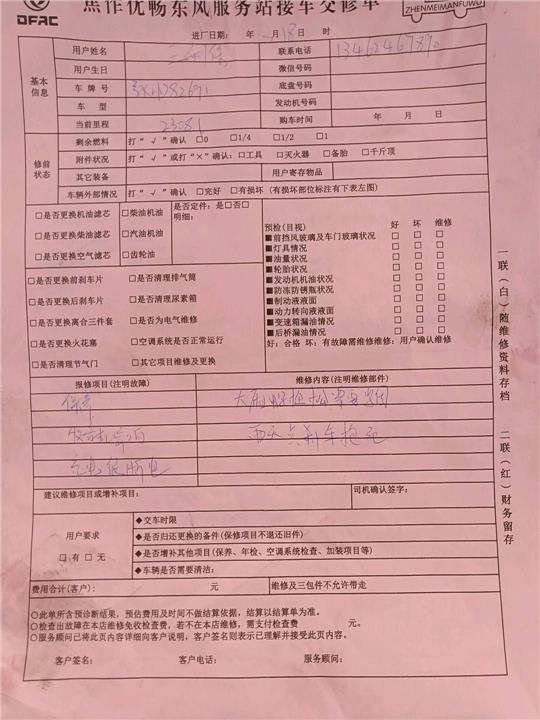 焦作优畅东风服务站接车交修单
DFAC
ZHENMEIMANFUWU
进厂日期: 年 月18日 时
基本信息
用户姓名 联系电话 13462467890
用户生日 微信号码
车牌号 底盘号码
车 型 发动机号码
当前里程 23081 购车时间 年 月 日
修前状态
剩余燃料 打“√”确认 □0 □1/4 □1/2 □1
附件状况 打“√”或打“×”确认:□工具 □灭火器 □备胎 □千斤顶
其它装备 用户寄存物品
车辆外部情况 打“√”确认 □完好 □有损坏(有损坏部位标注有下表左图)
□是否更换机油滤芯 □柴油机油 是否定件:是□否□
明细:
□是否更换柴油滤芯 □汽油机油
□是否更换空气滤芯 □齿轮油
□是否更换前刹车片 □是否清理排气筒
□是否更换后刹车片 □是否清理尿素箱
□是否更换离合三件套 □是否为电气维修
□是否更换火花塞 □空调系统是否正常运行
□是否清理节气门 □其它项目维修及更换
预检(目视) 好 坏 维修
■前挡风玻璃及车门玻璃状况 □ □ □
■灯具情况 □ □ □
■油量状况 □ □ □
■轮胎状况 □ □ □
■发动机机油状况 □ □ □
■防冻防锈瓶状况 □ □ □
■制动液液面 □ □ □
■动力转向液液面 □ □ □
■变速箱漏油情况 □ □ □
■后桥漏油情况 □ □ □
好:合格 坏:有故障需维修维修:用户确认维修
报修项目(注明故障) 维修内容(注明维修部件)
保养
雨天点刹车抱死
充电很断电
建议维修项目或增补项目: 司机确认签字:
用户要求
□有□无
◆交车时限
◆是否归还更换的备件(保修项目不退还旧件)
◆是否增补其他项目(保养、年检、空调系统检查、加装项目等)
◆车辆是否需要清洁:
费用合计(客户): 元 维修及三包件不允许带走
○此单所含预诊断结果,预估费用及时间不做结算依据,结算以结算单为准。
○检查出故障在本店维修免收检查费,若不在本店维修,需支付检查费 元。
○服务顾问已将此页内容详细向客户说明,客户签名则表示已理解并接受此页内容。
客户签名: 客户电话: 服务顾问:
一联(白)随维修资料存档 二联(红)财务留存